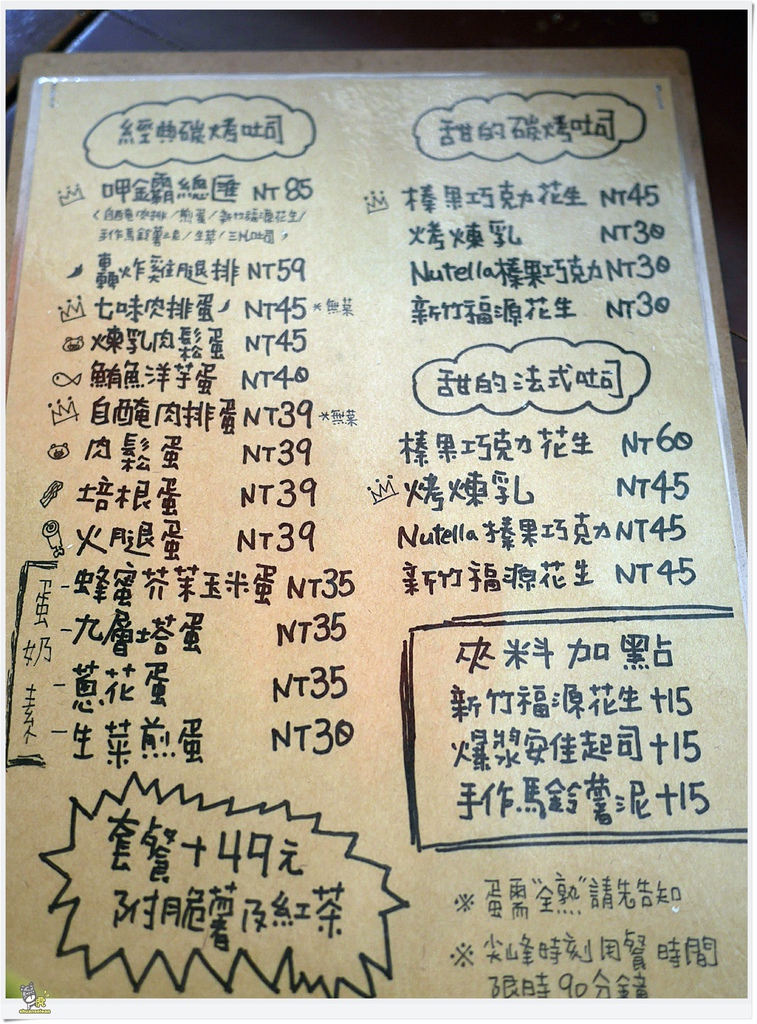 經典碳烤吐司
呷霸總匯 NT85
(自醃肉排/煎蛋/新竹福源花生/
手作馬鈴薯泥/生菜/三片吐司)
轟炸雞腿排 NT59
七味肉排蛋 NT45 *無菜
煉乳肉鬆蛋 NT45
鮪魚洋芋蛋 NT40
自醃肉排蛋 NT39 *無菜
肉鬆蛋 NT39
培根蛋 NT39
火腿蛋 NT39
蛋奶素
-蜂蜜芥茉玉米蛋 NT35
-九層塔蛋 NT35
-蔥花蛋 NT35
-生菜煎蛋 NT30
套餐+49元
附脆薯及紅茶
甜的碳烤吐司
榛果巧克力花生 NT45
烤煉乳 NT30
Nutella榛果巧克力 NT30
新竹福源花生 NT30
甜的法式吐司
榛果巧克力花生 NT60
烤煉乳 NT45
Nutella榛果巧克力 NT45
新竹福源花生 NT45
夾料加點
新竹福源花生+15
爆漿安佳起司+15
手作馬鈴薯泥+15
※ 蛋需"全熟"請先告知
※ 尖峰時刻用餐時間
限時90分鐘